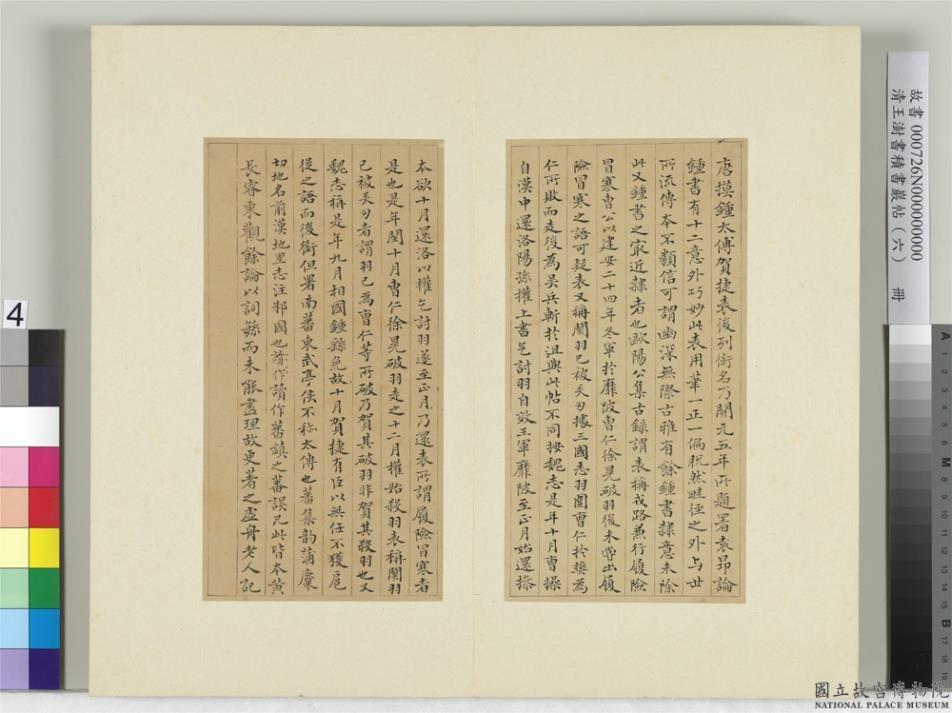 唐摸鍾太傅賀捷表後列銜名乃開元五年所題署袁昂論
鍾書有十二意外巧妙此表用筆一正一偏脫然畦徑之外与世
所流傳本不類信可謂幽深無際古雅有餘鍾書隸意未除
此又鍾書之㝡近隸者也歐陽公集古録謂表稱戎路兼行履險
冒寒曹公以建安二十四年冬軍於靡陂曹仁徐晃破羽後未甞出履
險冒寒之語可疑表又稱關羽已被矢刃據三國志羽圍曹仁於樊為
仁所敗而走後為吴兵斬於沮與此帖不同按魏志是年十月曹操
自漢中還洛陽孫權上書乞討羽自效王軍靡陂至正月始還操
本欲十月還洛以權乞討羽遂至正月乃還表所謂履險冒寒者
是也是年閏十月曹仁徐晃破羽走之十二月權始殺羽表稱關羽
已被矢刃者謂羽已為曹仁等所破乃賀其破羽非賀其殺羽也又
魏志稱是年九月相國鍾繇免故十月賀捷有臣以無任不獲扈
從之語而後銜但署南蕃東武亭侯不称太傅也蕃集韵蒲麋
切地名前漢地里志注邾國也讀作蕃鎮之蕃誤凡此皆本黄
長睿東觀餘論以詞緐而未能盡理故更著之虛舟老人記
故書 000726N000000000
清王澍書積書巖帖(六) 冊
4
A 1 2 3 4 5 6 7 8 9 10 11 12 13 14 15 B 17 18 19
國立故宮博物院
NATIONAL PALACE MUSEUM